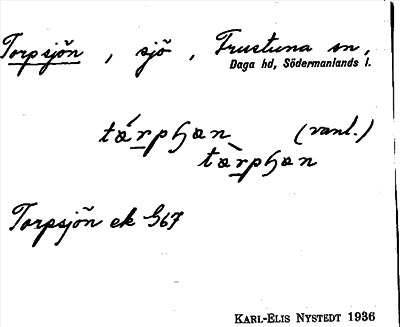 Torpsjön , sjö , Frustuna sn,
Daga hd, Södermanlands l.
tárphan (vanl.)
tàrphan
Torpsjön ek S67
KARL-ELIS NYSTEDT 1936